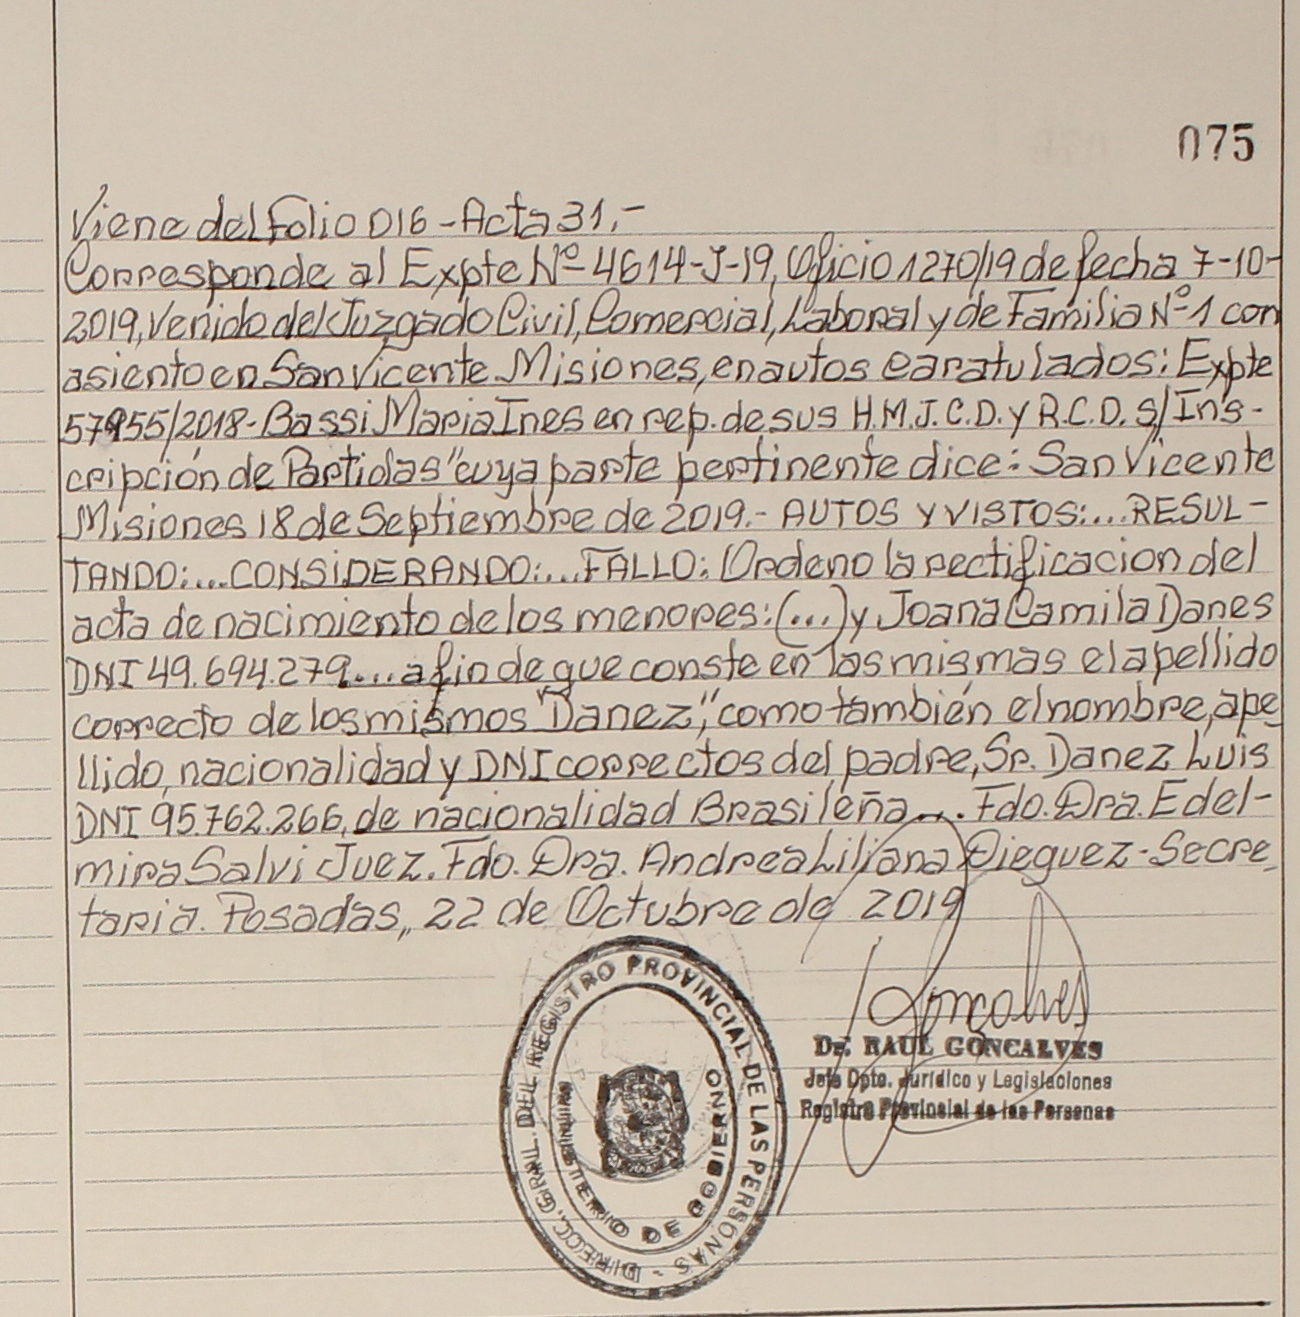 075
Viene del Folio 016 - Acta 31.-
Corresponde al Expte Nº 4614-J-19, Oficio 1270/19 de fecha 7-10-
2019, Venido del Juzgado Civil, Comercial, Laboral y de Familia Nº 1 con
asiento en San Vicente Misiones, en autos caratulados: Expte
57955/2018- Bassi Maria Ines en rep. de sus H.M.J.C.D. y R.C.D. S/ Ins-
cripción de Partidas" cuya parte pertinente dice: San Vicente
Misiones 18 de Septiembre de 2019.- AUTOS Y VISTOS:...RESUL-
TANDO:...CONSIDERANDO:...FALLO: Ordeno la rectificacion del
acta de nacimiento de los menores: (...) y Joana Camila Danes
DNI 49.694.279.... a fin de que conste en las mismas el apellido
correcto de los mismos "Danez", como también el nombre, ape
llido, nacionalidad y DNI correctos del padre, Sr. Danez Luis
DNI 95.762.266, de nacionalidad Brasileña.... Fdo. Dra. Edel-
mira Salvi Juez. Fdo. Dra. Andrea Liliana Dieguez - Secre
taria. Posadas,, 22 de Octubre de 2019
Goncalves
Dr. RAUL GONCALVES
Jefe Dpto. Jurídico y Legislaciones
Registro Provincial de las Personas
DIRECC. GRAL. DEL REGISTRO PROVINCIAL DE LAS PERSONAS -
MINISTERIO DE GOBIERNO